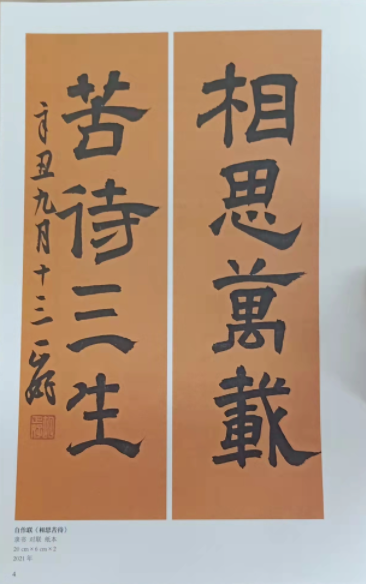 相思萬載
苦待三生
辛丑九月十三
自作联（相思苦待）
隶书 对联 纸本
2021 年
4